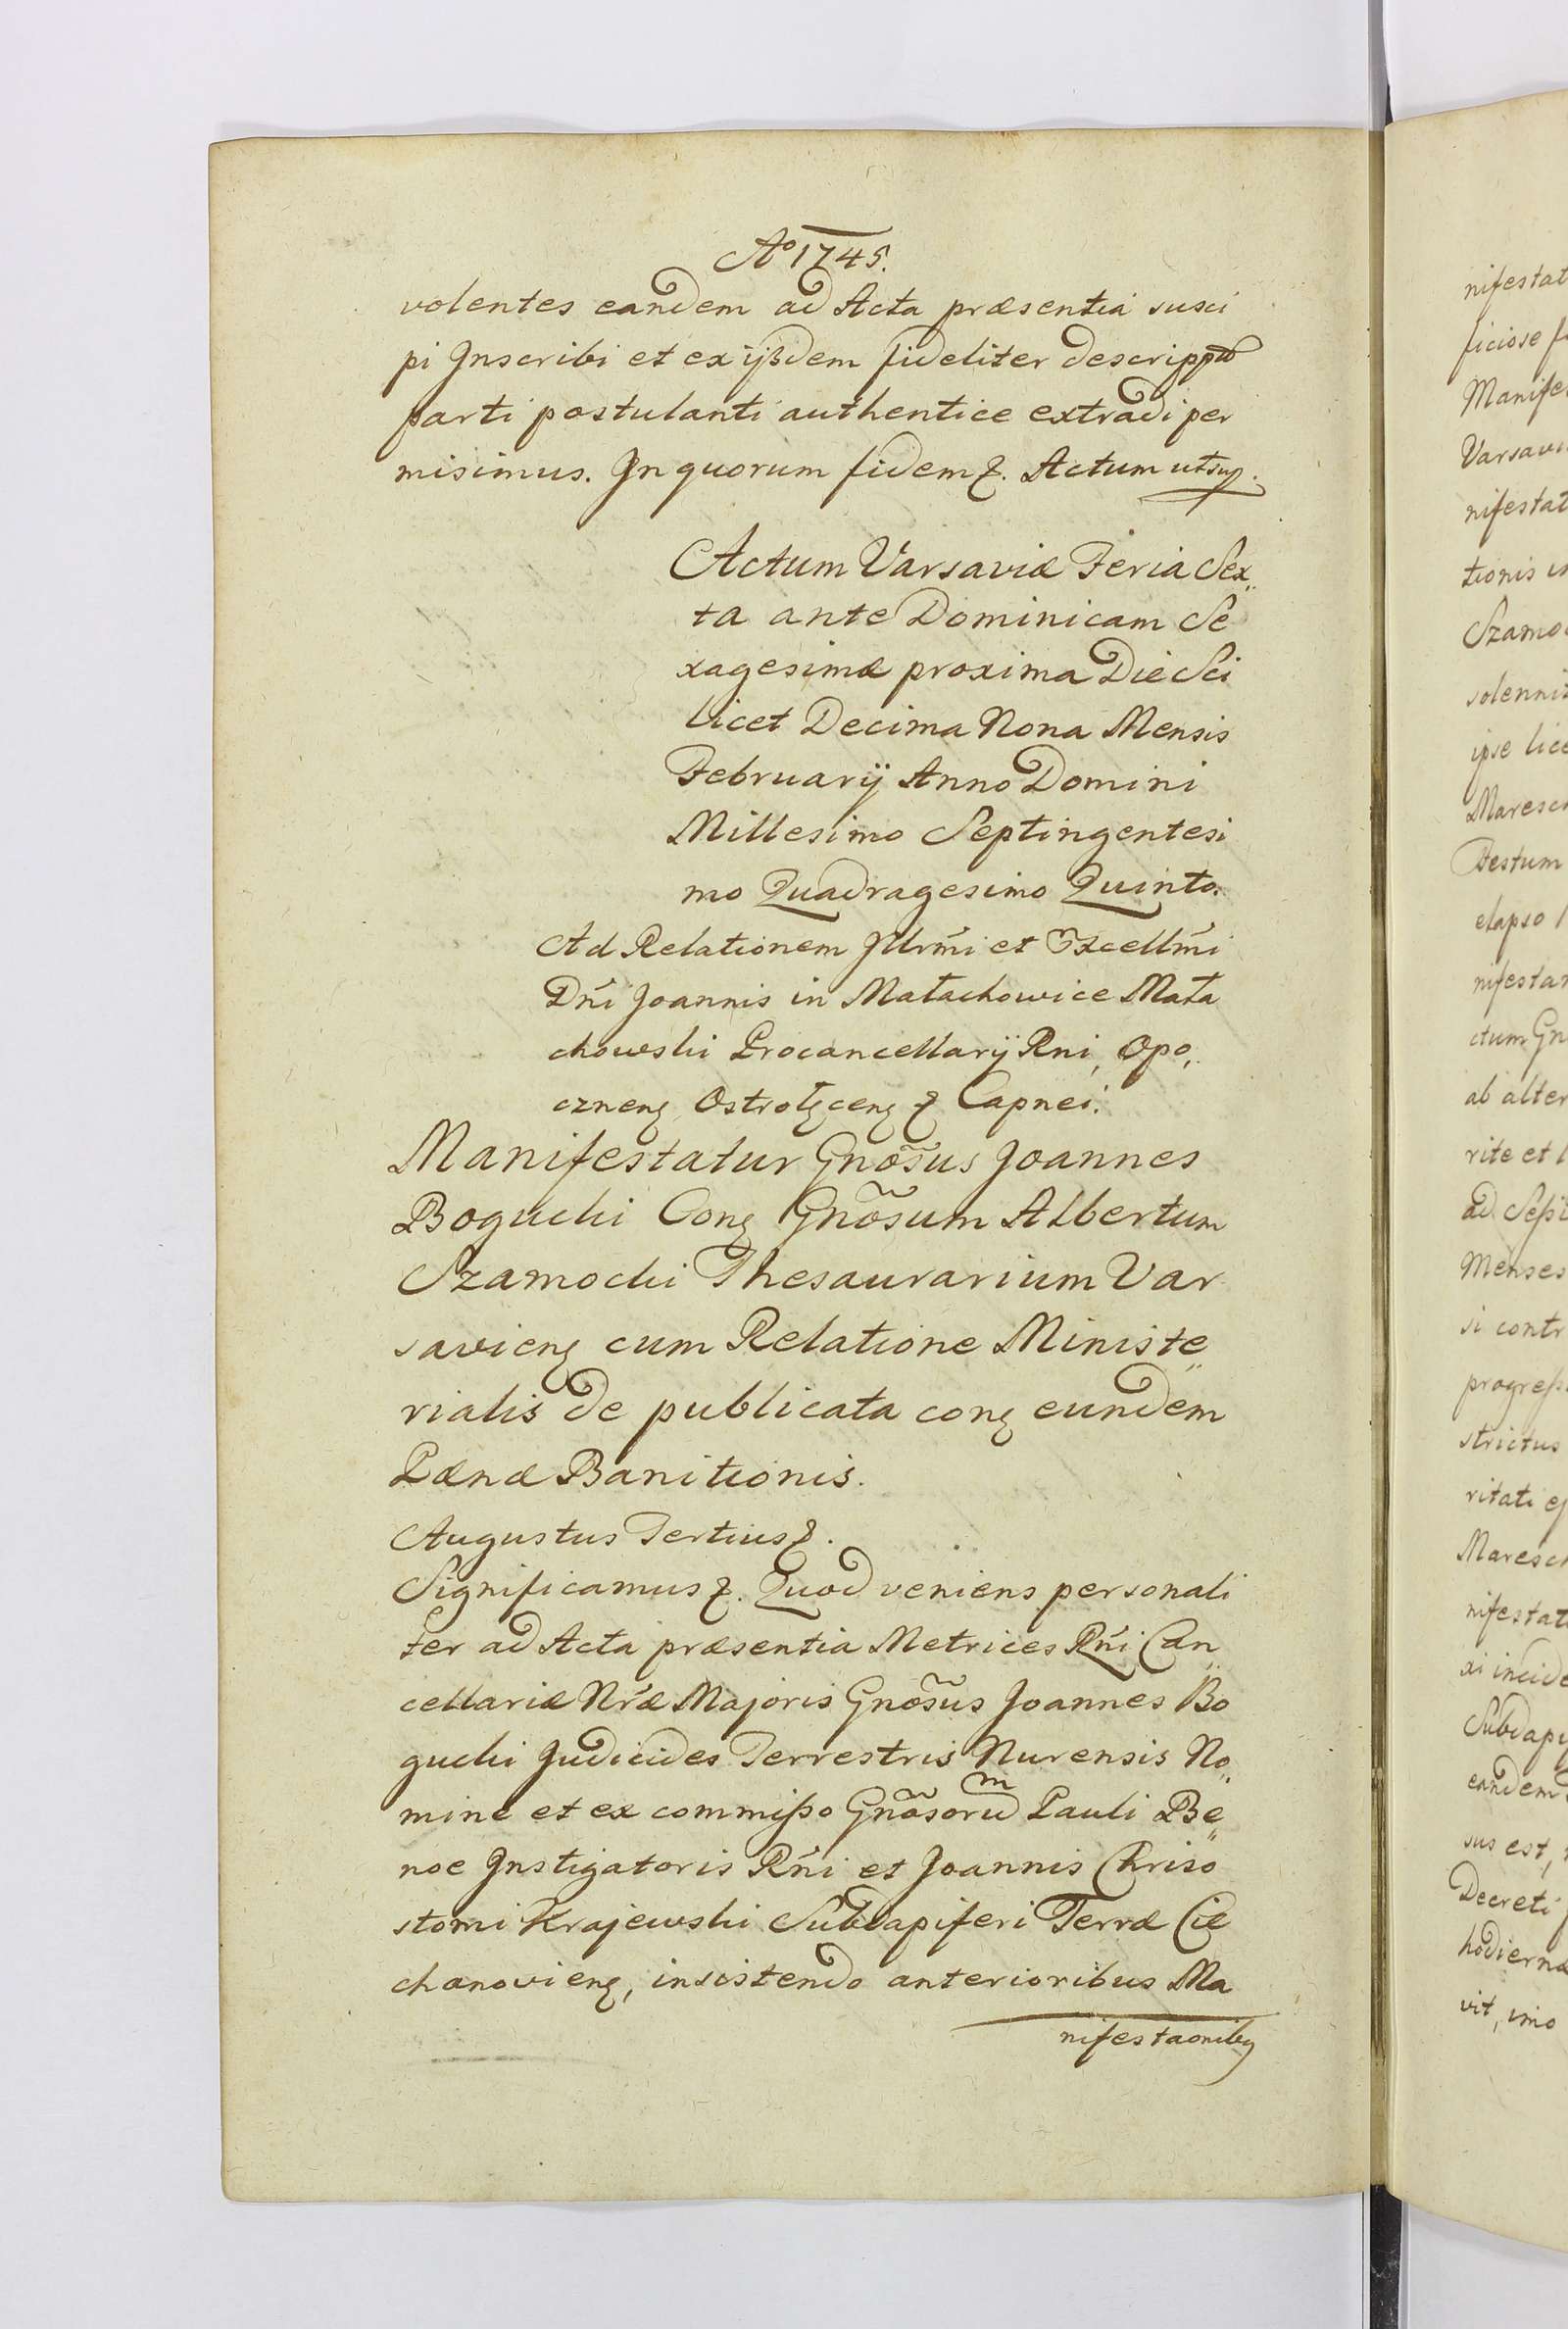 Ao 1745.
volentes eandem ad Acta præsentia susci
pi Inscribi et ex ijsdem fideliter descriptã
parti postulanti authentice extradi per
misimus. In quorum fidem &. Actum ut sup.
Actum Varsaviæ Feria Sex„
ta ante Dominicam Se
xagesimæ proxima Die Sci
licet Decima Nona Mensis
Februarij Anno Domini
Millesimo Septingentesi
mo Quadragesimo Quinto.
Ad Relationem Illrmi et Excellmi
Dni Joannis in Małachowice Mała
chowski Procancellarij Rni, Opo„
cznenȝ Ostrołȩcenȝ & Capnei.
Manifestatur Gnõsus Joannes
Bogucki Conȝ Gnõsum Albertum
Szamocki Thesaurarium Var
savienȝ cum Relatione Ministe„
rialis de publicata conȝ eundem
Pænæ Banitionis.
Augustus Tertius &.
Significamus &. Quod veniens personali
ter ad Acta præsentia Metrices Rni Can„
cellariæ Nræ Majoris Gnõsus Joannes Bo
gucki Judicides Terrestris Nurensis No„
mine et ex commißo Gnõsorum Pauli Be„
noe Instigatoris Rni et Joannis Chriso
stomi Krajewski Subdapiferi Terræ Cie
chanovienȝ, insistendo anterioribus Ma
nifestaonibȝ
nifestat
ficiose
Manife
Varsavi
nifestat
tionis
Szamo
solenni
ipse lice
Maresc
Festum
elapso
nifestan
ctum Gn
ab alter
rite et
ad Seßi
Menses
si contr
progreß
strictus
ritati
Maresc
nifestat
xi incide
Subdapi
eandem
sus est,
Decreti
hodierna
vit, imo